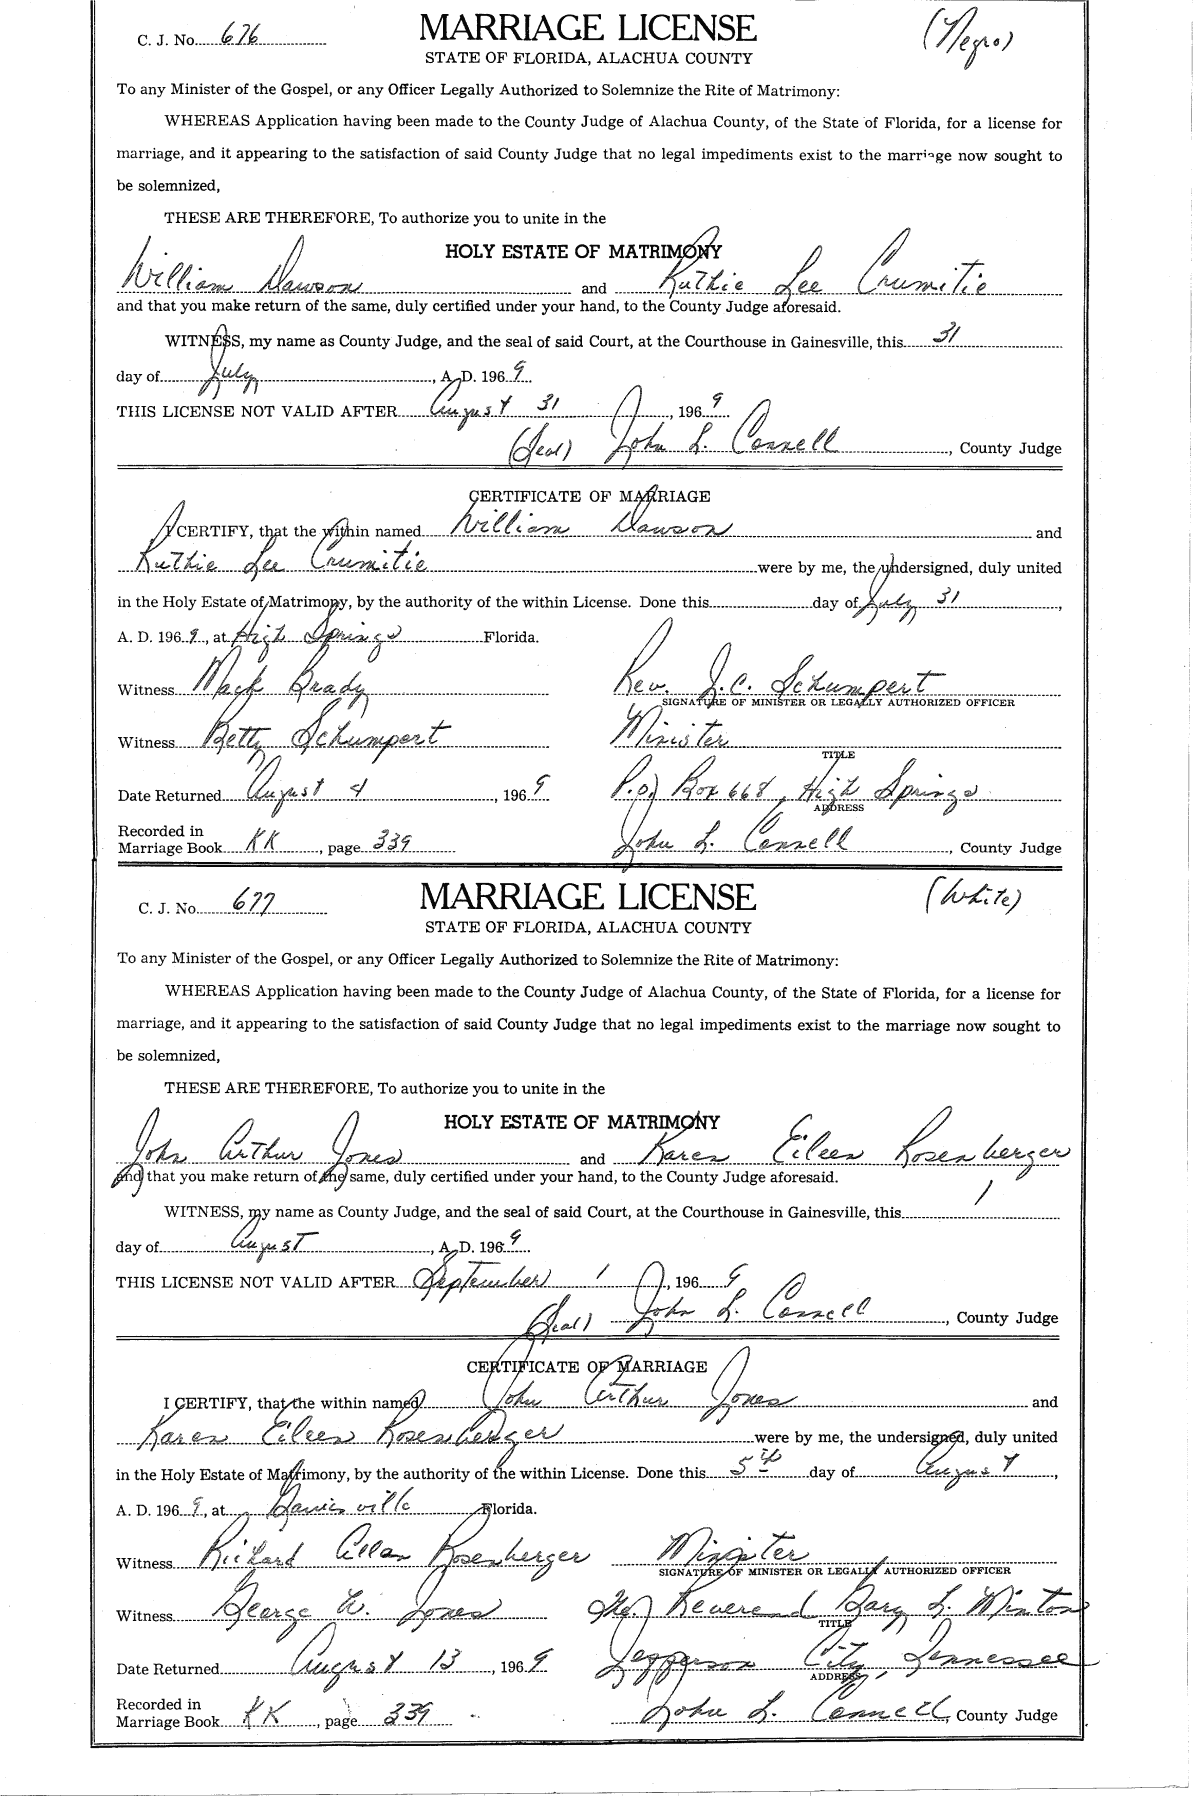 C. J. No. 676
MARRIAGE LICENSE
(Negro)
STATE OF FLORIDA, ALACHUA COUNTY
To any Minister of the Gospel, or any Officer Legally Authorized to Solemnize the Rite of Matrimony:
WHEREAS Application having been made to the County Judge of Alachua County, of the State of Florida, for a license for
marriage, and it appearing to the satisfaction of said County Judge that no legal impediments exist to the marriage now sought to
be solemnized,
THESE ARE THEREFORE, To authorize you to unite in the
HOLY ESTATE OF MATRIMONY
William Dawson and Ruthie Lee Crumitie
and that you make return of the same, duly certified under your hand, to the County Judge aforesaid.
WITNESS, my name as County Judge, and the seal of said Court, at the Courthouse in Gainesville, this 31
day of July, A. D. 1969.
THIS LICENSE NOT VALID AFTER August 31, 1969.
(Seal) John L. Connell, County Judge
CERTIFICATE OF MARRIAGE
I CERTIFY, that the within named William Dawson and
Ruthie Lee Crumitie were by me, the undersigned, duly united
in the Holy Estate of Matrimony, by the authority of the within License. Done this day of July 31,
A. D. 1969, at High Springs Florida.
Witness Mack Brady Rev. J.C. Schumpert
SIGNATURE OF MINISTER OR LEGALLY AUTHORIZED OFFICER
Witness Betty Schumpert Minister
TITLE
Date Returned August 4, 1969 P.O. Box 668, High Springs
ADDRESS
Recorded in
Marriage Book KK, page 339 John L. Connell, County Judge
C. J. No. 677
MARRIAGE LICENSE
(White)
STATE OF FLORIDA, ALACHUA COUNTY
To any Minister of the Gospel, or any Officer Legally Authorized to Solemnize the Rite of Matrimony:
WHEREAS Application having been made to the County Judge of Alachua County, of the State of Florida, for a license for
marriage, and it appearing to the satisfaction of said County Judge that no legal impediments exist to the marriage now sought to
be solemnized,
THESE ARE THEREFORE, To authorize you to unite in the
HOLY ESTATE OF MATRIMONY
John Arthur Jones and Karen Eileen Rosenberger
and that you make return of the same, duly certified under your hand, to the County Judge aforesaid.
WITNESS, my name as County Judge, and the seal of said Court, at the Courthouse in Gainesville, this 1
day of August, A. D. 1969.
THIS LICENSE NOT VALID AFTER September 1, 1969
(Seal) John L. Connell, County Judge
CERTIFICATE OF MARRIAGE
I CERTIFY, that the within named John Arthur Jones and
Karen Eileen Rosenberger were by me, the undersigned, duly united
in the Holy Estate of Matrimony, by the authority of the within License. Done this 5th day of August,
A. D. 1969, at Florida.
Witness Richard Allan Rosenberger Minister
SIGNATURE OF MINISTER OR LEGALLY AUTHORIZED OFFICER
Witness George W. Jones The Reverend Gary L. Minton
TITLE
Date Returned August 13, 1969 Jefferson City, Tennessee
ADDRESS
Recorded in
Marriage Book KK, page 339 John L. Connell, County Judge